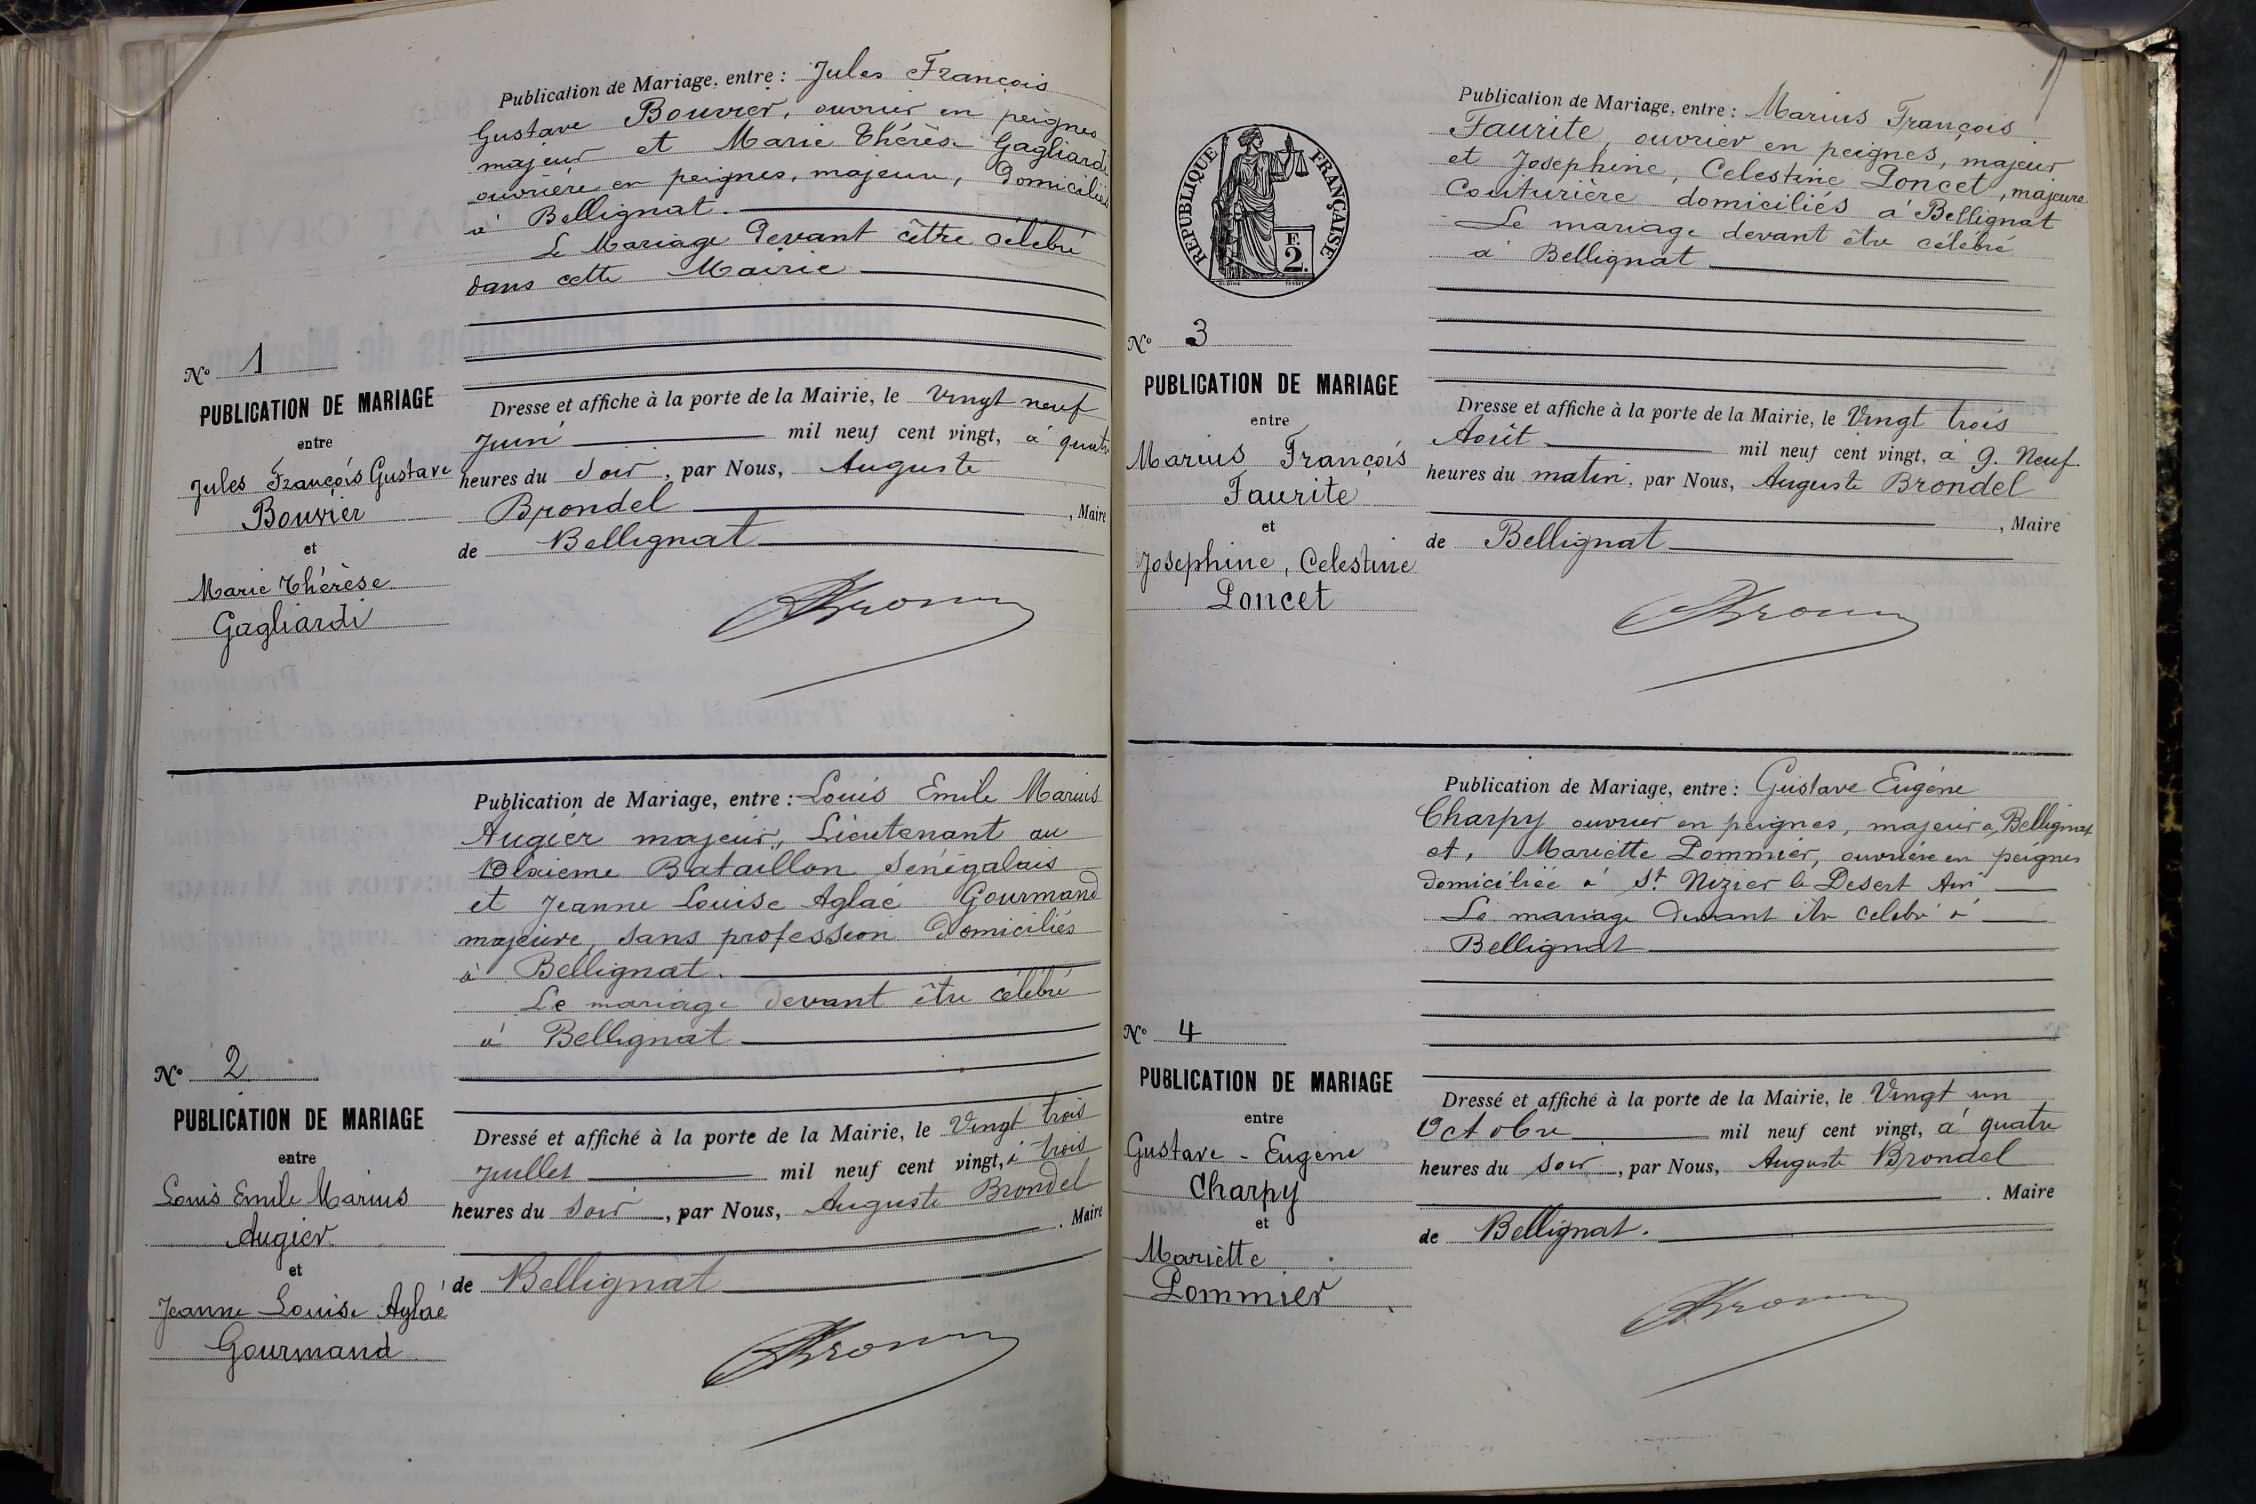 Publication de Mariage, entre : Jules François
Gustave Bouvier, ouvrier en peignes
majeur et Marie Thérèse Gagliardi
ouvrière en peignes, majeure, Domiciliés
à Bellignat.
Le Mariage Devant être célébré
dans cette Mairie
N° 1
PUBLICATION DE MARIAGE
entre
Jules François Gustave
Bouvier
et
Marie Thérèse
Gagliardi
Dresse et affiche à la porte de la Mairie, le Vingt neuf
Juin mil neuf cent vingt, à quatre
heures du Soir, par Nous, Auguste
Brondel, Maire
de Bellignat
Publication de Mariage, entre : Louis Emile Marius
Augier majeur, Lieutenant au
Bataillon Sénégalais
et Jeanne Louise Aglaé Gourmand
majeure, sans profession Domiciliés
à Bellignat.
Le mariage Devant être célébré
à Bellignat
N° 2
PUBLICATION DE MARIAGE
entre
Louis Emile Marius
Augier
et
Jeanne Louise Aglaé
Gourmand
Dressé et affiché à la porte de la Mairie, le Vingt trois
Juillet mil neuf cent vingt, à trois
heures du Soir, par Nous, Auguste Brondel
. Maire
de Bellignat
RÉPUBLIQUE FRANÇAISE
F.
2.
Publication de Mariage, entre : Marius François
Faurite, ouvrier en peignes, majeur
et Josephine, Celestine Poncet, majeure
Couturière domiciliés à Bellignat
Le mariage devant être célébré
à Bellignat
N° 3
PUBLICATION DE MARIAGE
entre
Marius François
Faurite
et
Josephine, Celestine
Poncet
Dresse et affiche à la porte de la Mairie, le Vingt trois
Août mil neuf cent vingt, à 9. Neuf
heures du matin, par Nous, Auguste Brondel
, Maire
de Bellignat
Publication de Mariage, entre : Gustave Eugène
Charpy ouvrier en peignes, majeur à Bellignat
et, Mariette Pommier, ouvrière en peignes
domiciliée à St Nizier le Desert Ain
Le mariage Devant être celebré à
Bellignat
N° 4
PUBLICATION DE MARIAGE
entre
Gustave - Eugène
Charpy
et
Mariette
Pommier
Dressé et affiché à la porte de la Mairie, le Vingt un
Octobre mil neuf cent vingt, à quatre
heures du Soir, par Nous, Auguste Brondel
. Maire
de Bellignat.